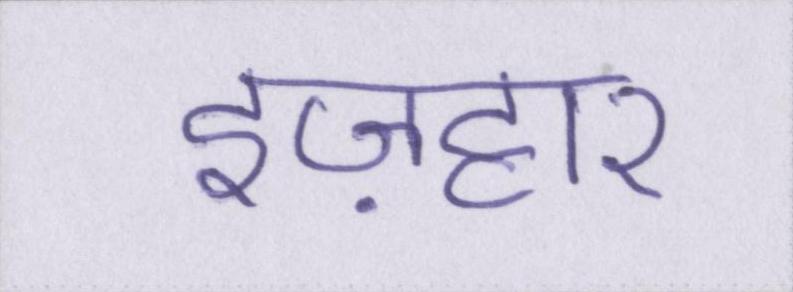 इज़हार